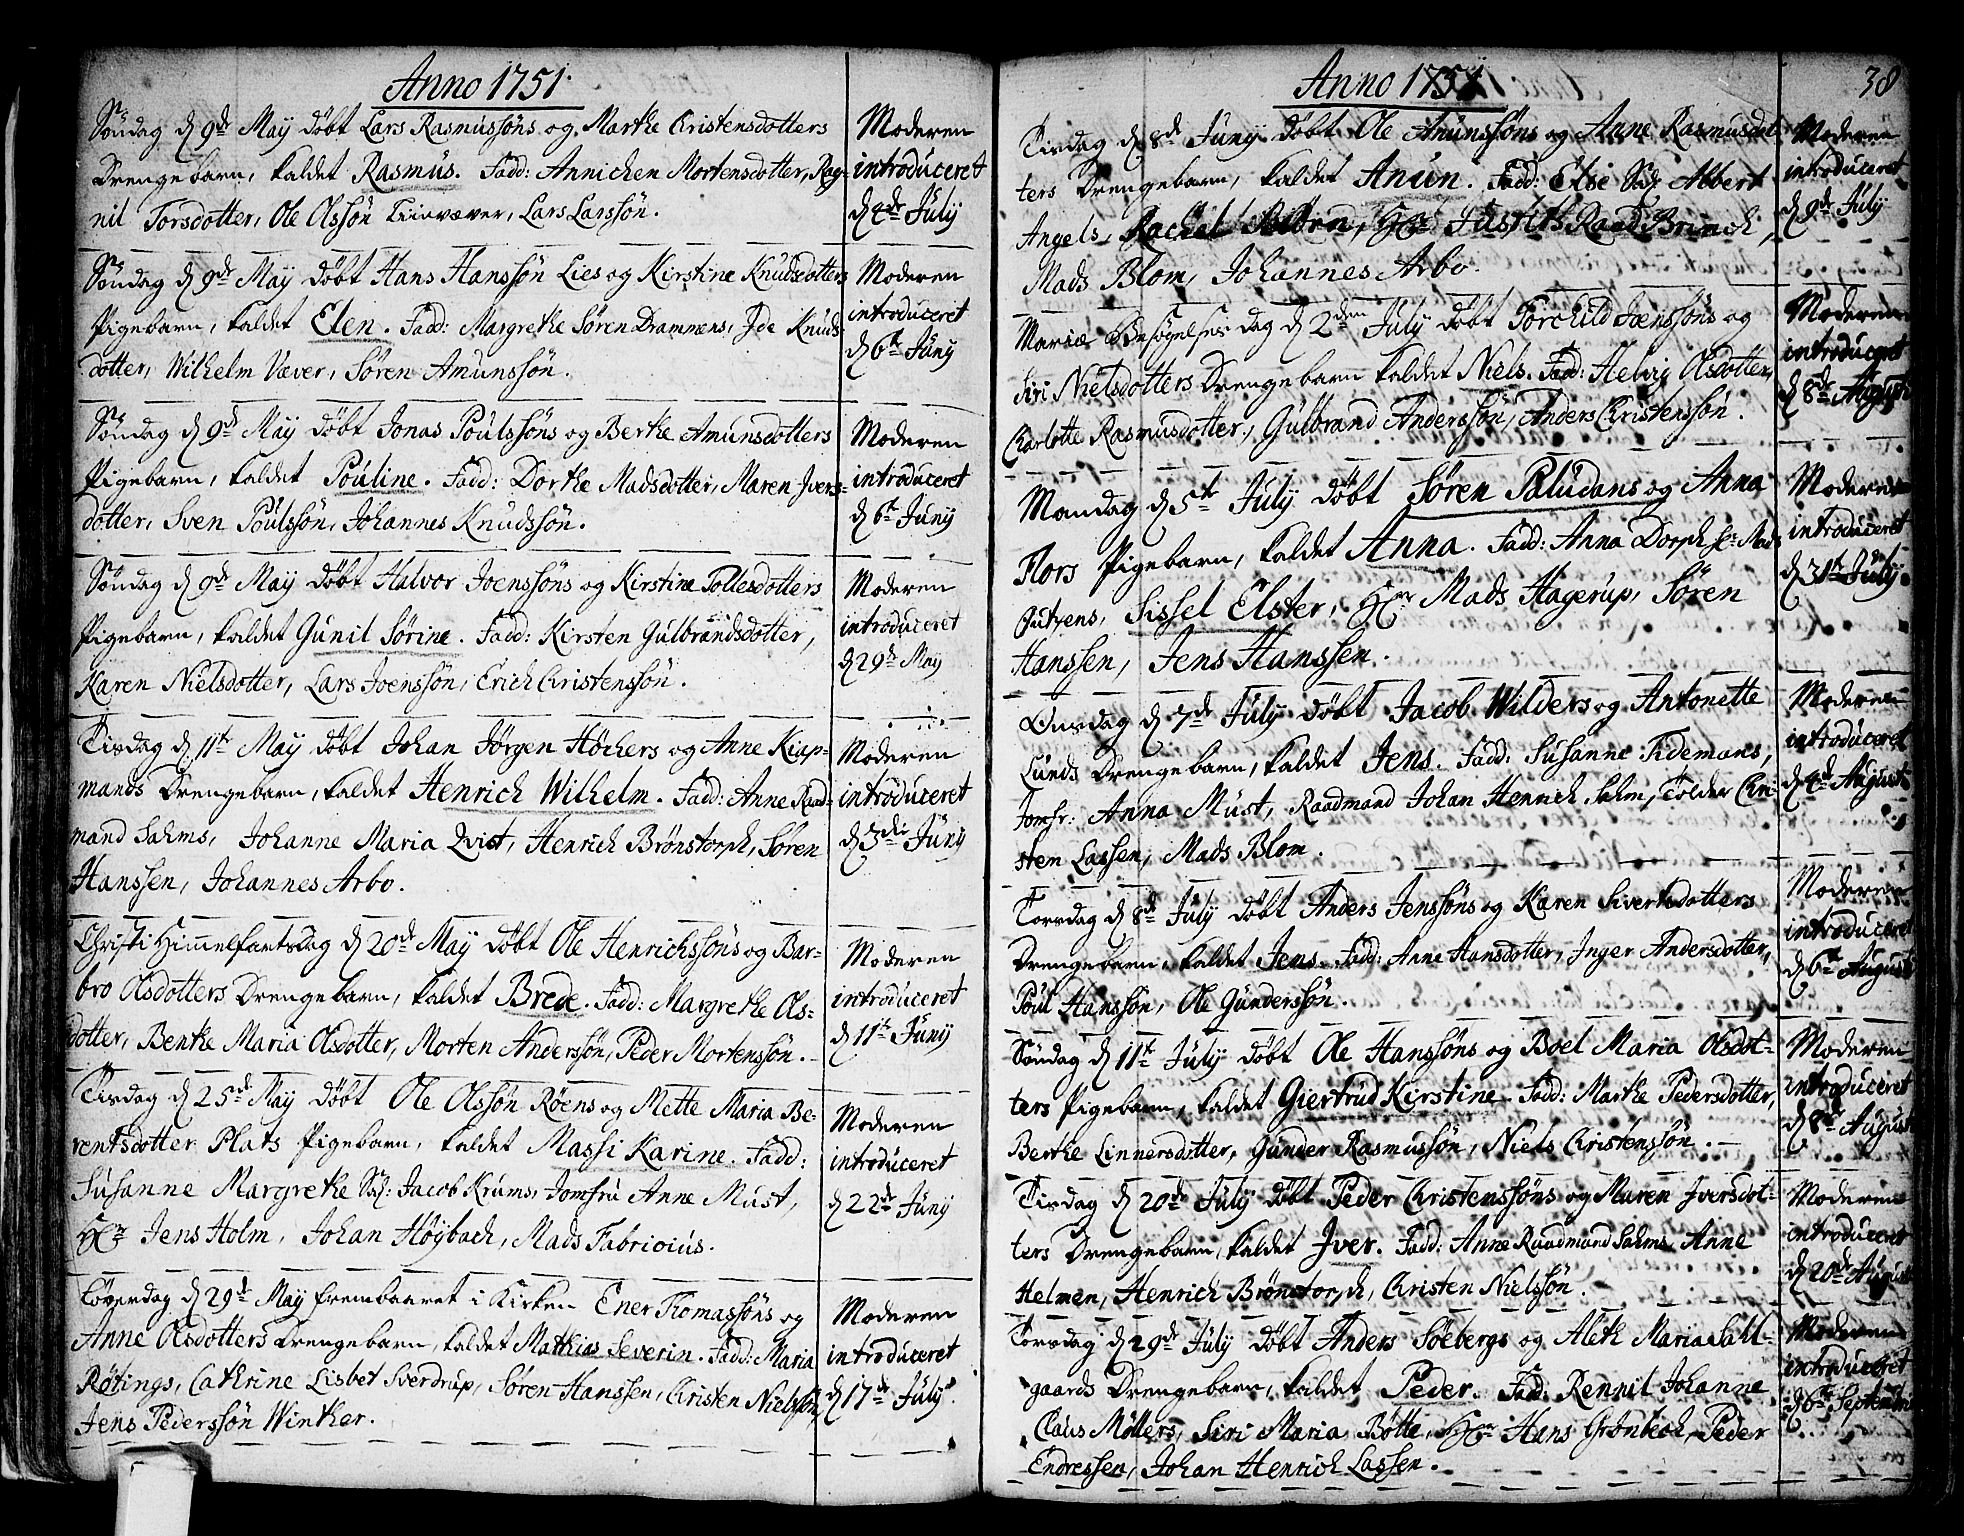 Anno 1751.
Søndag d 9de Maÿ døbt Lars Rasmussøns og Marthe Christensdotters
Drengebarn, kaldet Rasmus. Fadd: Annichen Mortensdotter, Rag-
nil Torsdotter, Ole Olssøn Linvæver, Lars Larssøn.
Moderen
introduceret
d 4de Julÿ
Søndag d 9de Maÿ døbt Hans Hanssøn Lies og Kirstine Knudsdotters
Pigebarn, kaldet Elen. Fadd: Margrethe Søren Drammens, Ide Knuds
dotter, Wilhelm Væver, Søren Amunssøn.
Moderen
introduceret
d 6te Junÿ
Søndag d 9de Maÿ døbt Jonas Poulssøns og Berthe Amunsdotters
Pigebarn, kaldet Pouline. Fadd: Dorthe Madsdotter, Maren Ivers-
dotter, Sven Poulssøn, Johannes Knudssøn.
Moderen
introduceret
d 6te Junÿ
Søndag d 9de Maÿ døbt Halvor Joenssøns og Kirstine Tollesdotters
Pigebarn, kaldet Gunil Sørine. Fadd: Kirsten Gulbrandsdotter,
Karen Nielsdotter, Lars Joenssøn, Erich Christenssøn.
Moderen
introduceret
d 29de Maÿ
Tisdag d 11te Maÿ døbt Johan Jørgen Höchers og Anne Kiap-
mands Drengebarn, kaldet Henrich Wilhelm. Fadd: Anne Raad-
mand Sahms, Johanne Maria Qvist, Henrich Brønstorph, Søren
Hanssen, Johannes Arbo.
Moderen
introduceret
d 3die Junÿ
Christi Himmelfartsdag d 20de Maÿ døbt Ole Henrichssøns og Bar-
bro Olsdotters Drengebarn, kaldet Brede. Fadd: Margrethe Ols-
dotter, Benthe Maria Olsdotter, Morten Anderssøn, Peder Mortenssøn.
Moderen
introduceret
d 11te Junÿ
Tisdag d 25de Maÿ døbt Ole Olssøn Røens og Mette Maria Be-
rentsdotter Plats Pigebarn, kaldet Massi Karine. Fadd:
Susanne Margrethe Jacob Krums, Jomfru Anne Must,
Hr Jens Holm, Johan Høÿbach, Mads Fabricius.
Moderen
introduceret
d 22de Junÿ
Løverdag d 29de Maÿ frembaaret i Kirken Ener Thomassøns og
Anne Olsdotters Drengebarn, kaldet Mathias Severin. Fadd: Maria
Røtings, Cathrine Lisbet Sverdrup, Søren Hanssen, Christen Nielssøn,
Jens Pederssøn Winther.
Moderen
introduceret
d 17de Julÿ
Anno 1751
38
Tisdag d 8de Junÿ døbt Ole Anunssøns og Anne Rasmusdot
ters Drengebarn, kaldet Anun. Fadd: Else Albert
Angels, Rachel, Hr Justits Raad Brinch,
Mads Blom, Johannes Arbo.
Moderen
introduceret
d 9de Julÿ
Mariæ Besøgelses dag d 2den Julÿ døbt Torchild Joenssøns og
Siri Nielsdotters Drengebarn kaldet Niels. Fadd: Helvig Olsdotter,
Charlotte Rasmusdotter, Gulbrand Anderssøn, Anders Christenssøn.
Moderen
introduceret
d 8de August
Mandag d 5te Julÿ døbt Søren Paludans og Anna
Flors Pigebarn, kaldet Anna. Fadd: Anna Dorph Mads
Gutzens, Sissel Elster, Hr Mads Hagerup, Søren
Hanssen, Jens Hanssen.
Moderen
introduceret
d 31te Julÿ
Onsdag d 7de Julÿ døbt Jacob Wilders og Antonette
Lunds Drengebarn, kaldet Jens. Fadd: Susanne Tidemans,
Jomfr: Anna Must, Raadmand Johan Henrich Sahm, Tolder Chri-
sten Lassen, Mads Blom.
Moderen
introduceret
d 4de August
Torsdag d 8de Julÿ døbt Anders Jenssøns og Karen Sivertsdotters
Drengebarn, kaldet Jens. Fadd: Anne Hansdotter, Inger Andersdotter,
Poul Hanssøn, Ole Gunderssøn.
Moderen
introduceret
d 6te August
Søndag d 11te Julÿ døbt Ole Hanssøns og Boel Maria Olsdot-
ters Pigebarn, kaldet Giertrud Kirstine. Fadd: Marthe Pedersdotter,
Berthe Linnersdotter, Gunder Rasmussøn, Niels Christenssøn.
Moderen
introduceret
d 8de August
Tisdag d 20de Julÿ døbt Peder Christenssøns og Maren Iversdot-
ters Drengebarn, kaldet Iver. Fadd: Anne Raadmand Sahms, Anne
Helmen, Henrich Brønstorph, Christen Nielssøn.
Moderen
introduceret
d 20de August
Torsdag d 29de Julÿ døbt Anders Soebergs og Aleth Maria Dahl-
gaards Drengebarn, kaldet Peder. Fadd: Rennil Johanne
Claus Møllers, Siri Maria Bøtte, Hr Hans Grønbech, Peder
Endressen, Johan Henrich Lassen.
Moderen
introduceret
d 6te Septembr